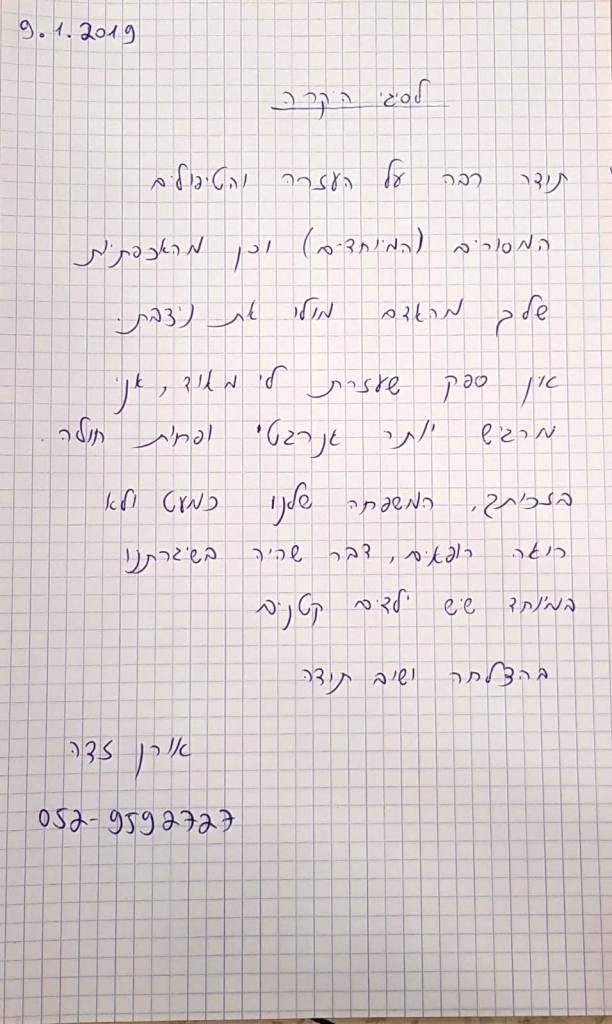 9.1.2019
לסיגי היקרה
תודה רבה על העזרה והטיפולים
המסורים (המיוחדים) וכן מהאכפתיות
שלך מהאדם מולו את ניצבת.
אין ספק שעזרת לי מאוד, אני
מרגיש יותר אנרגטי ופחות חולה.
בזכותך, המשפחה שלנו כמעט ולא
רואה רופאים, דבר שהיה בשיגרתנו
במיוחד שיש ילדים קטנים
בהצלחה ושוב תודה
אורן
052-9592727